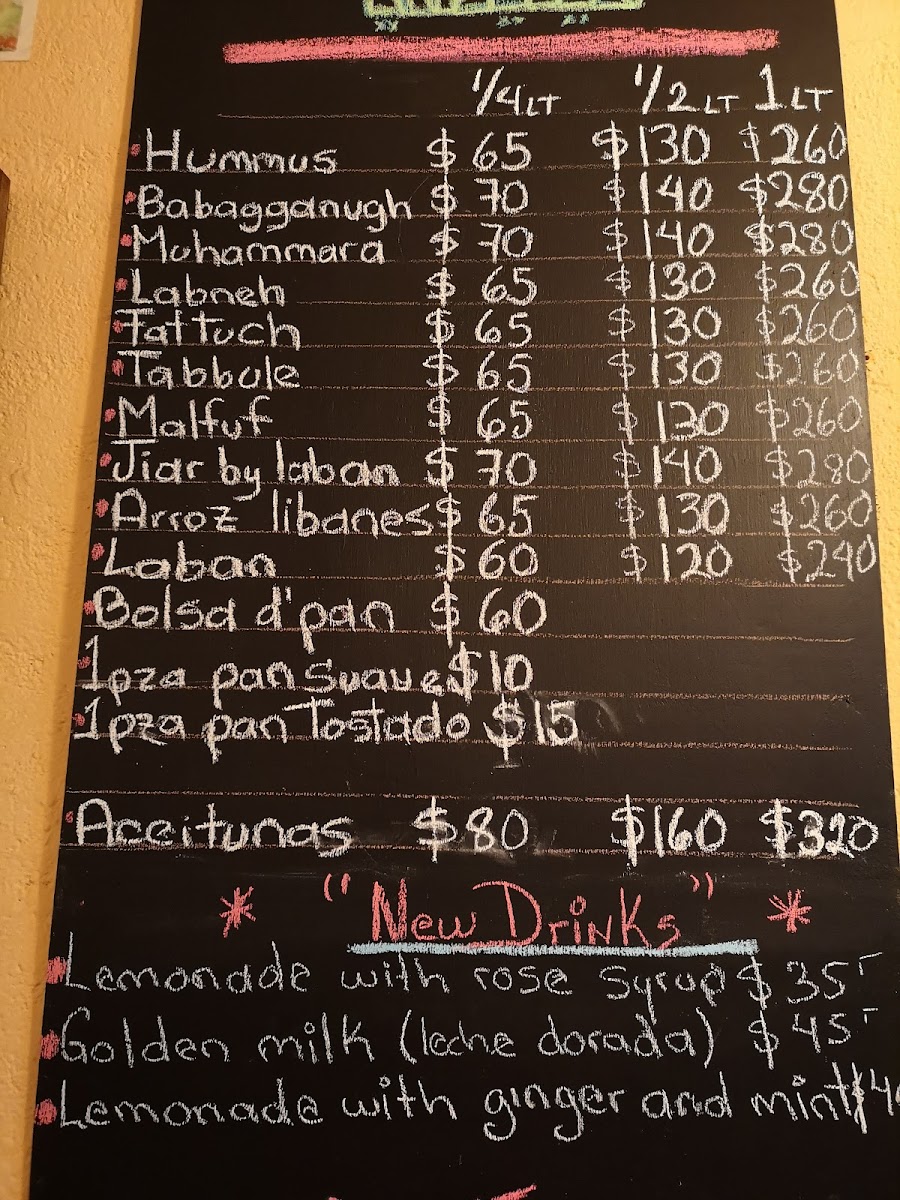 1/4 LT 1/2 LT 1 LT
Hummus $ 65 $ 130 $260
Babagganugh $ 70 $ 140 $280
Muhammara $ 70 $ 140 $280
Labneh $ 65 $ 130 $260
Fattuch $ 65 $ 130 $260
Tabbule $ 65 $ 130 $260
Malfuf $ 65 $ 130 $260
Jiar by laban $ 70 $ 140 $280
Arroz libanes $ 65 $ 130 $260
Laban $ 60 $ 120 $240
Bolsa d'pan $ 60
1pza pan suave $10
1pza pan Tostado $15
Aceitunas $80 $160 $320
* "New Drinks" *
Lemonade with rose syrup $ 35-
Golden milk (leche dorada) $ 45-
Lemonade with ginger and mint $